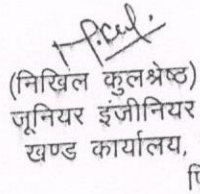 (निखिल कुलश्रेष्ठ)
जूनियर इंजीनियर
खण्ड कार्यालय,